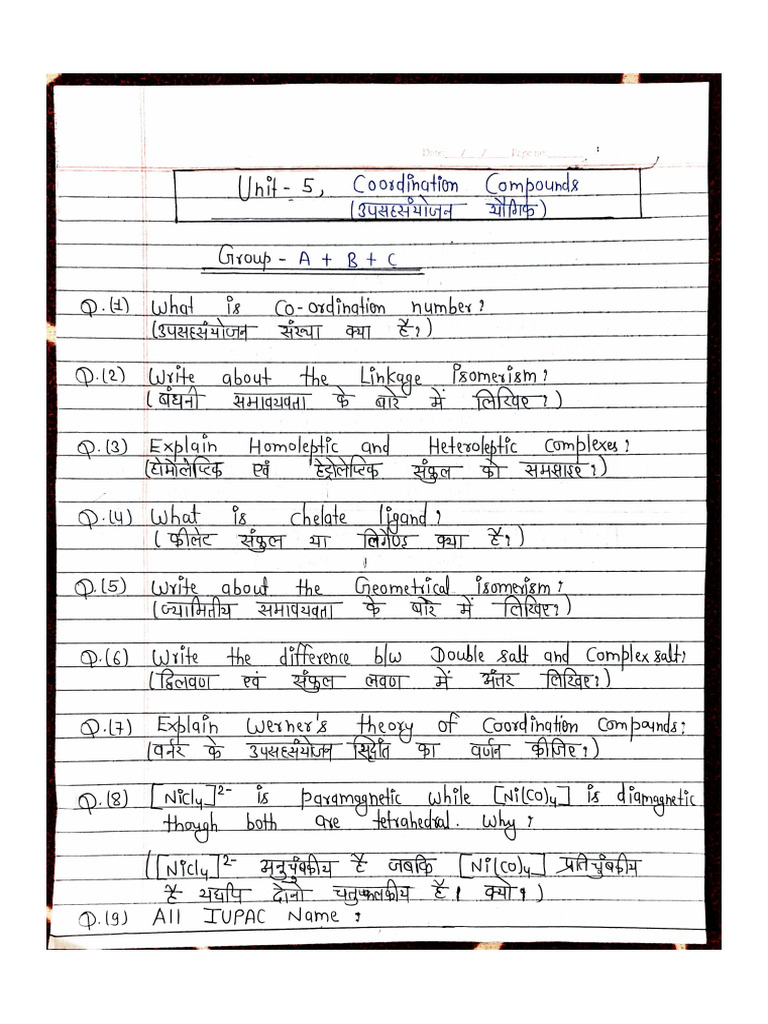 Date __/__/__ Page no.____
Unit - 5, Coordination Compounds
(उपसहसंयोजन यौगिक)
Group - A + B + C
Q.(1) What is Co-ordination number?
(उपसहसंयोजन संख्या क्या है?)
Q.(2) Write about the Linkage isomerism?
(बंधनी समावयवता के बारे में लिखिए?)
Q.(3) Explain Homoleptic and Heteroleptic Complexes?
(होमोलेप्टिक एवं हेट्रोलेप्टिक संकुल को समझाइए?)
Q.(4) What is chelate ligand?
(कीलेट संकुल या लिगैण्ड क्या है?)
Q.(5) Write about the Geometrical isomerism?
(ज्यामितीय समावयवता के बारे में लिखिए?)
Q.(6) Write the difference b/w Double salt and Complex salt?
(द्विलवण एवं संकुल लवण में अंतर लिखिए?)
Q.(7) Explain Werner's theory of Coordination Compounds?
(वर्नर के उपसहसंयोजन सिद्धांत का वर्णन कीजिए?)
Q.(8) [Nicl₄]²⁻ is paramagnetic while [Ni(Co)₄] is diamagnetic
though both are tetrahedral. Why?
([Nicl₄]²⁻ अनुचुंबकीय है जबकि [Ni(Co)₄] प्रतिचुंबकीय
है यद्यपि दोनो चतुष्फलकीय है। क्यो?)
Q.(9) All IUPAC Name?